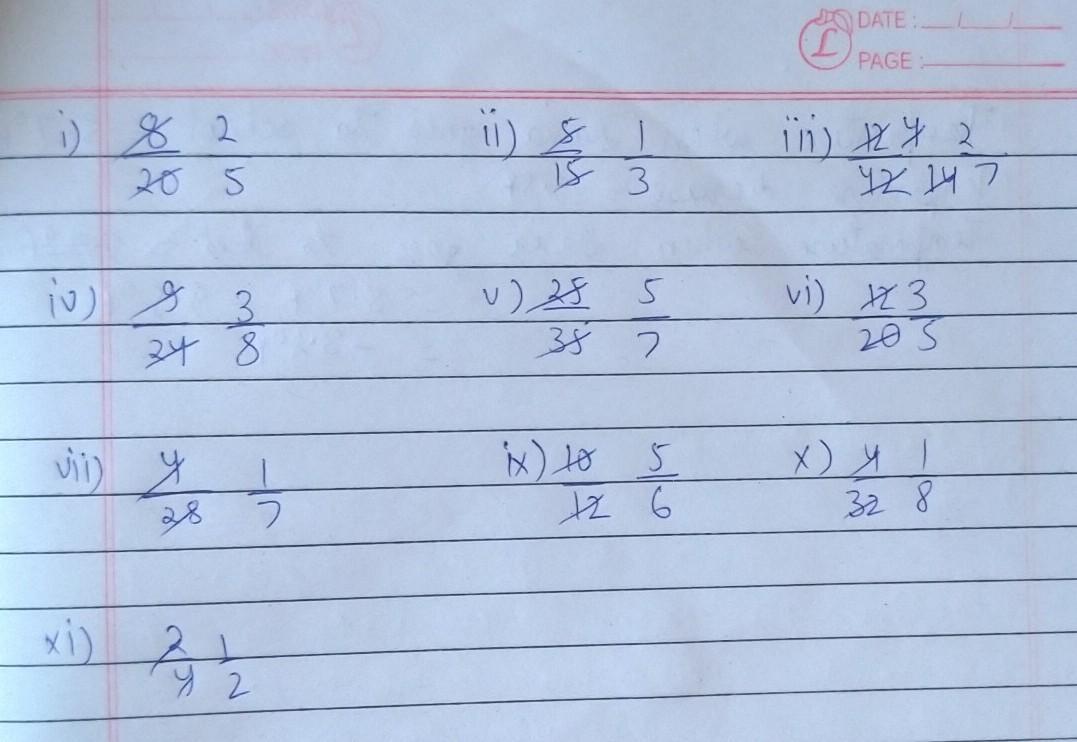 DATE : / /
PAGE :
i) 8/20 2/5 ii) 5/15 1/3 iii) 12/42 4/14 2/7
iv) 9/24 3/8 v) 25/35 5/7 vi) 12/20 3/5
vii) 4/28 1/7 ix) 10/12 5/6 x) 4/32 1/8
xi) 2/4 1/2